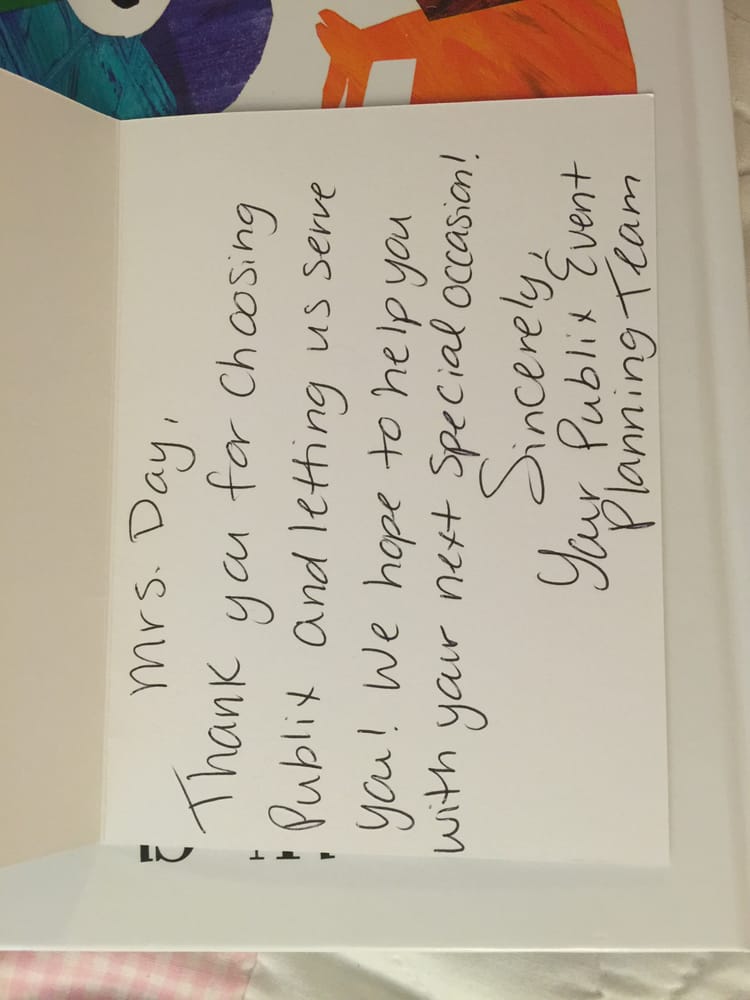 Mrs. Day,
Thank you for choosing
Publix and letting us serve
you! We hope to help you
with your next special occasion!
Sincerely,
Your Publix Event
Planning Team